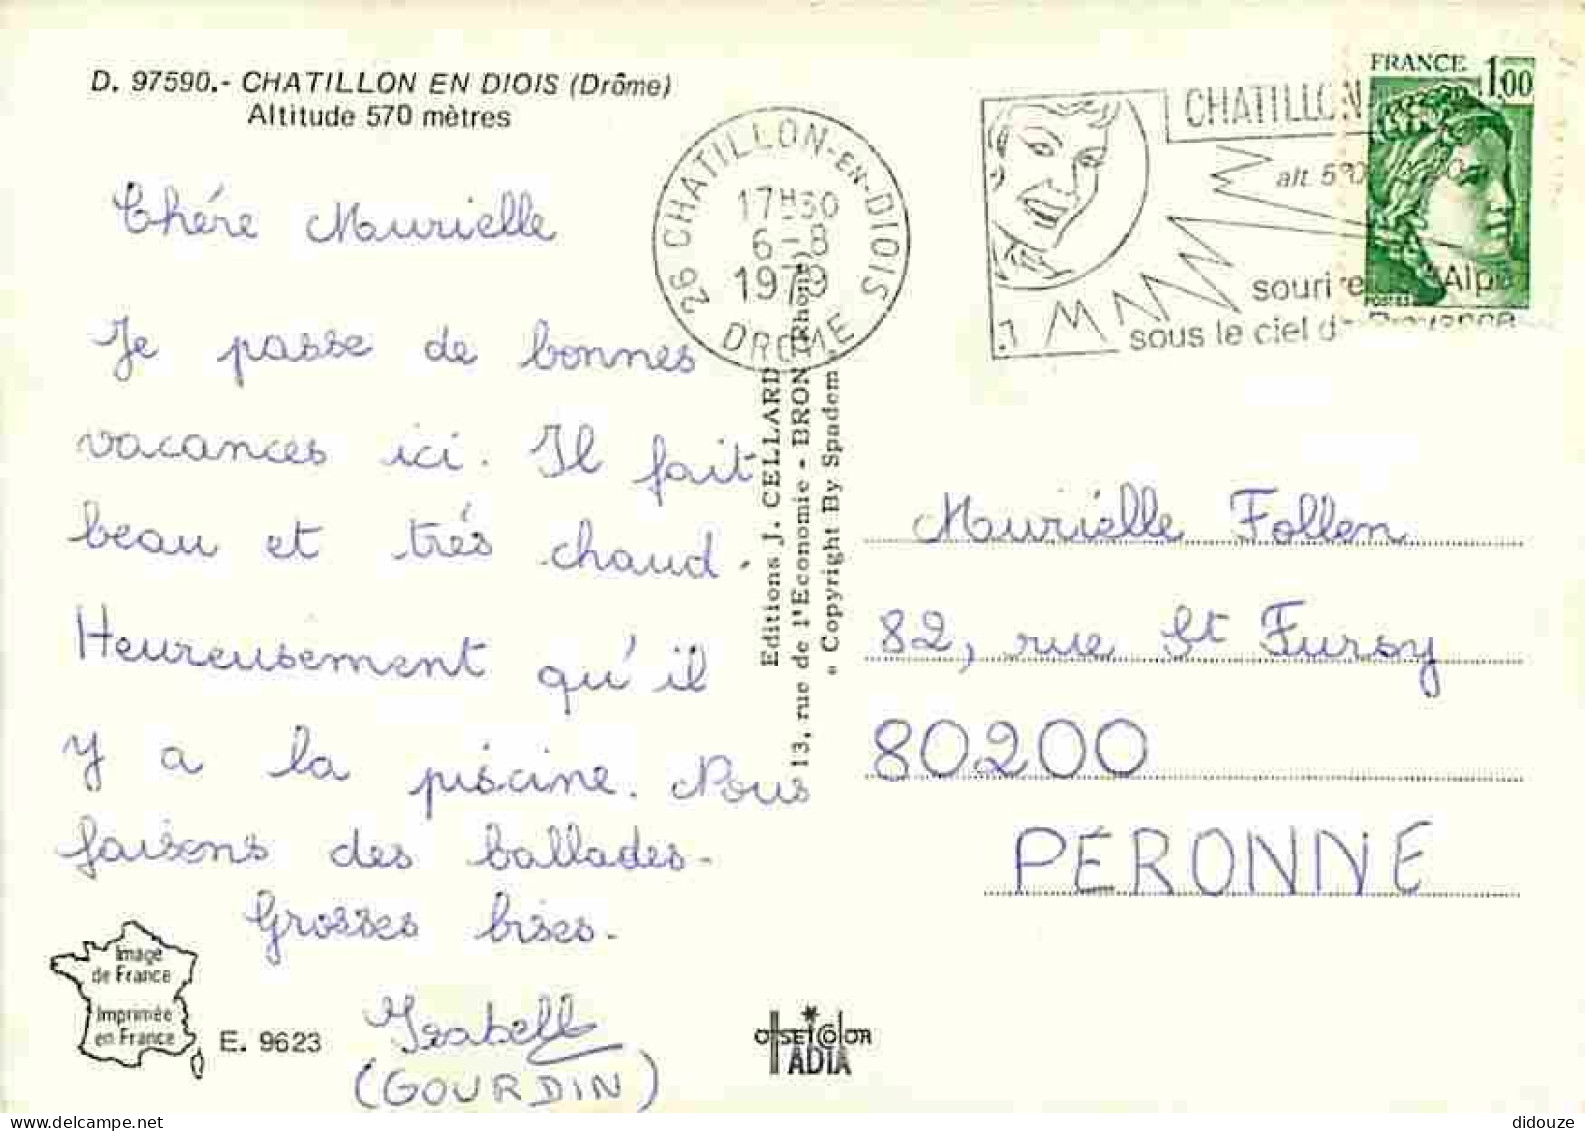 D. 97590.- CHATILLON EN DIOIS (Drôme)
Altitude 570 mètres
Chére Murielle
Je passe de bonnes
vacances ici. Il fait
beau et trés chaud.
Heureusement qu'il
y a la piscine. Nous
faisons des ballades.
Grosses bises.
Isabelle
(GOURDIN)
Image
de France
Imprimée
en France
E. 9623
26 CHATILLON-EN-DIOIS
17H30
6-8
1979
DROME
Editions J. CELLARD
13, rue de l'Economie - BRON (Rhône)
« Copyright By Spadem
OFFSETCOLOR
ADIA
CHATILLON
alt. 570
sourire Alpe
sous le ciel de Provence
FRANCE 1,00
POSTES
Muriélle Follen
82, rue St Fursy
80200
PERONNE
didouze